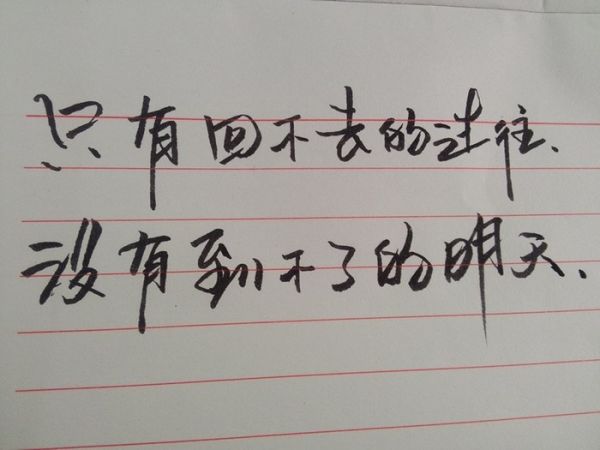 只有回不去的过往、
没有到不了的明天.